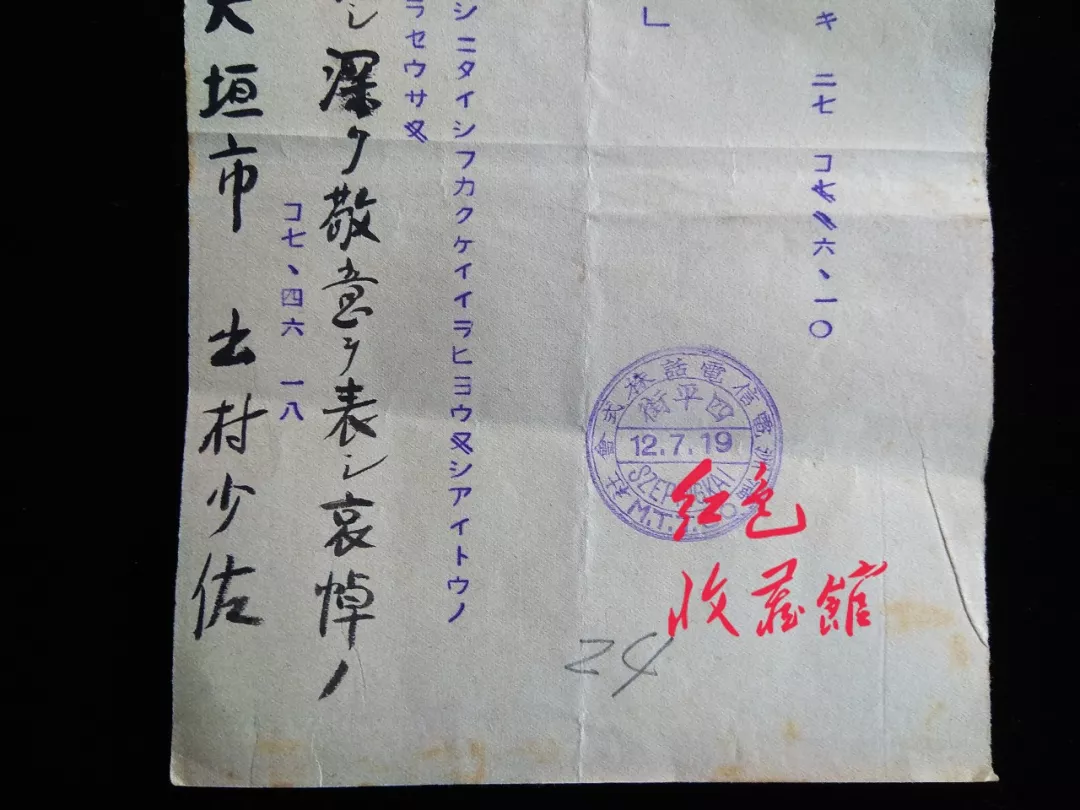 キ 二七 コ 六、一〇
」
シニタイシフカクケイイラヒヨウヌシアイトウノ
ラセウサヌ
シ 深ク敬意ヲ表シ哀悼ノ
コ七、四六 一八
大垣市 出村少佐
満洲電信電話株式會社
四平街
12.7.19
SZEPINGKAI
M.T.T.CO.
红色
收藏館
24